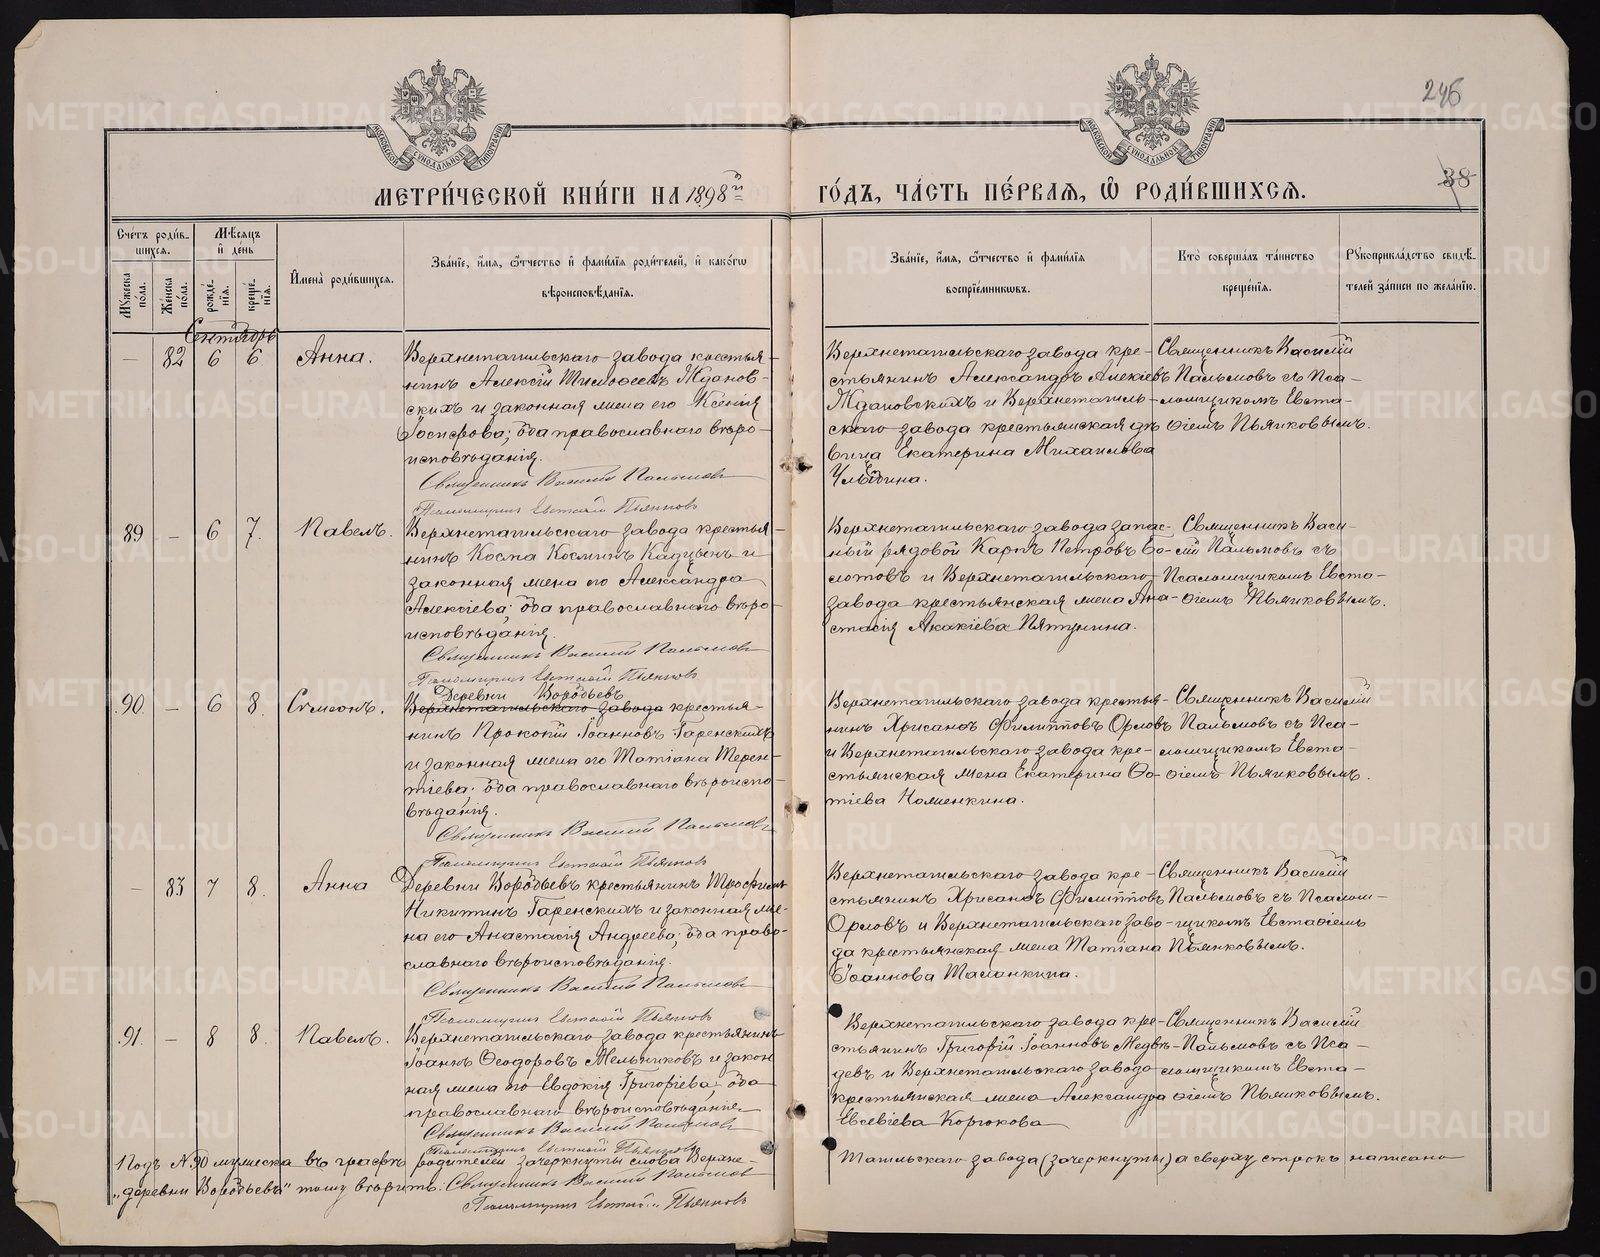 246
38
МЕТРИ́ЧЕСКОЙ КНИ́ГИ НА 1898й ГО́ДЪ, ЧА́СТЬ ПЕ́РВАЯ, Ѡ РОДИ́ВШИХСЯ.
Сче́тъ роди́в-
шихся.
Мѣсяцъ
и де́нь
Му́жеска по́ла.
Же́нска по́ла.
рожде́-
нїя.
креще́-
нїя.
Имена̀ роди́вшихся.
Зва́нїе, и́мя, ѻ́тчество и фами́лїя роди́телей, и како́гѡ
вѣроисповѣ́данїя.
Зва́нїе, и́мя, ѻ́тчество и фами́лїя
воспрїе́мникѡвъ.
Кто̀ соверша́лъ та́инство
креще́нїя.
Рꙋкоприкла́дство свидѣ́-
телей за́писи по жела́нїю.
Сентябрь
— 82 6 6 Анна.
Верхнетагильскаго завода крестья-
нинъ Алексій Тимоѳеевъ Жданов-
скихъ и законная жена его Ксенія
Іосифова; оба православнаго вѣро-
исповѣданія.
Священникъ Василій Пальмовъ
Псаломщикъ Евстаѳій Пьянковъ
Верхнетагильскаго завода кре-
стьянинъ Александръ Алексіевъ
Ждановскихъ и Верхнетагиль-
скаго завода крестьянская дѣ
вица Екатерина Михаилова
Священникъ Василій
Пальмовъ съ Пса-
ломщикомъ Евста-
ѳіемъ Пьянковымъ.
89 — 6 7. Павелъ.
Верхнетагильскаго завода крестья-
нинъ Косма Косминъ Кадцынъ и
законная жена его Александра
Алексіева; оба православнаго вѣро-
исповѣданія.
Священникъ Василій Пальмовъ
Псаломщикъ Евстаѳій Пьянковъ
Верхнетагильскаго завода запас-
ный рядовой Карпъ Петровъ Бо-
лотовъ и Верхнетагильскаго
завода крестьянская жена Ана-
стасія Акакіева Пятунина.
Священникъ Васи-
лій Пальмовъ съ
Псаломщикомъ Евста-
ѳіемъ Пьянковымъ.
90. — 6 8. Сѵмеонъ.
Деревни Воробьевъ
Верхнетагильскаго завода крестья-
нинъ Прокопій Іоанновъ Гаренскихъ
и законная жена его Татіана Терен-
тіева. оба православнаго вѣроиспо-
вѣданія.
Священникъ Василій Пальмовъ
Псаломщикъ Евстаѳій Пьянковъ
Верхнетагильскаго завода крестья-
нинъ Хрисанѳъ Филипповъ Орловъ
и Верхнетагильскаго завода кре-
стьянская жена Екатерина Фо-
тіева Поменкина.
Священникъ Василій
Пальмовъ съ Пса-
ломщикомъ Евста-
ѳіемъ Пьянковымъ.
— 83 7 8. Анна
Деревни Воробьевъ крестьянинъ Трофимъ
Никитинъ Гаренскихъ и законная же-
на его Анастасія Андреева; оба право-
славнаго вѣроисповѣданія.
Священникъ Василій Пальмовъ
Псаломщикъ Евстаѳій Пьянковъ
Верхнетагильскаго завода кре-
стьянинъ Хрисанѳъ Филипповъ
Орловъ и Верхнетагильскаго заво-
да крестьянская жена Татіана
Іоаннова Таланкина.
Священникъ Василій
Пальмовъ съ Псалом-
щикомъ Евстаѳіемъ
Пьянковымъ.
91. — 8 8 Павелъ.
Верхнетагильскаго завода крестьянинъ
Іоаннъ Ѳеодоровъ Мельниковъ и закон
ная жена его Евдокія Григоріева; оба
православнаго вѣроисповѣданія.
Священникъ Василій Пальмовъ
Псаломщикъ Евстаѳій Пьянковъ
Верхнетагильскаго завода кре-
стьянинъ Григорій Іоанновъ Медвѣ-
девъ и Верхнетагильскаго завода
крестьянская жена Александра
Евсевіева Корюкова
Священникъ Василій
Пальмовъ съ Пса-
ломщикомъ Евста-
ѳіемъ Пьянковымъ.
Подъ N 90 мужеска въ графѣ родителей зачеркнуты слова Верхне-
Тагильскаго завода (зачеркнуты) а сверху строкъ написано
„деревни Воробьевъ" тому вѣрить. Священникъ Василій Пальмовъ
Псаломщикъ Евстаѳій Пьянковъ
METRIKI.GASO-URAL.RU